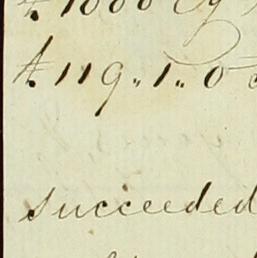 £1000
£119.. 1.. 0
succeeded